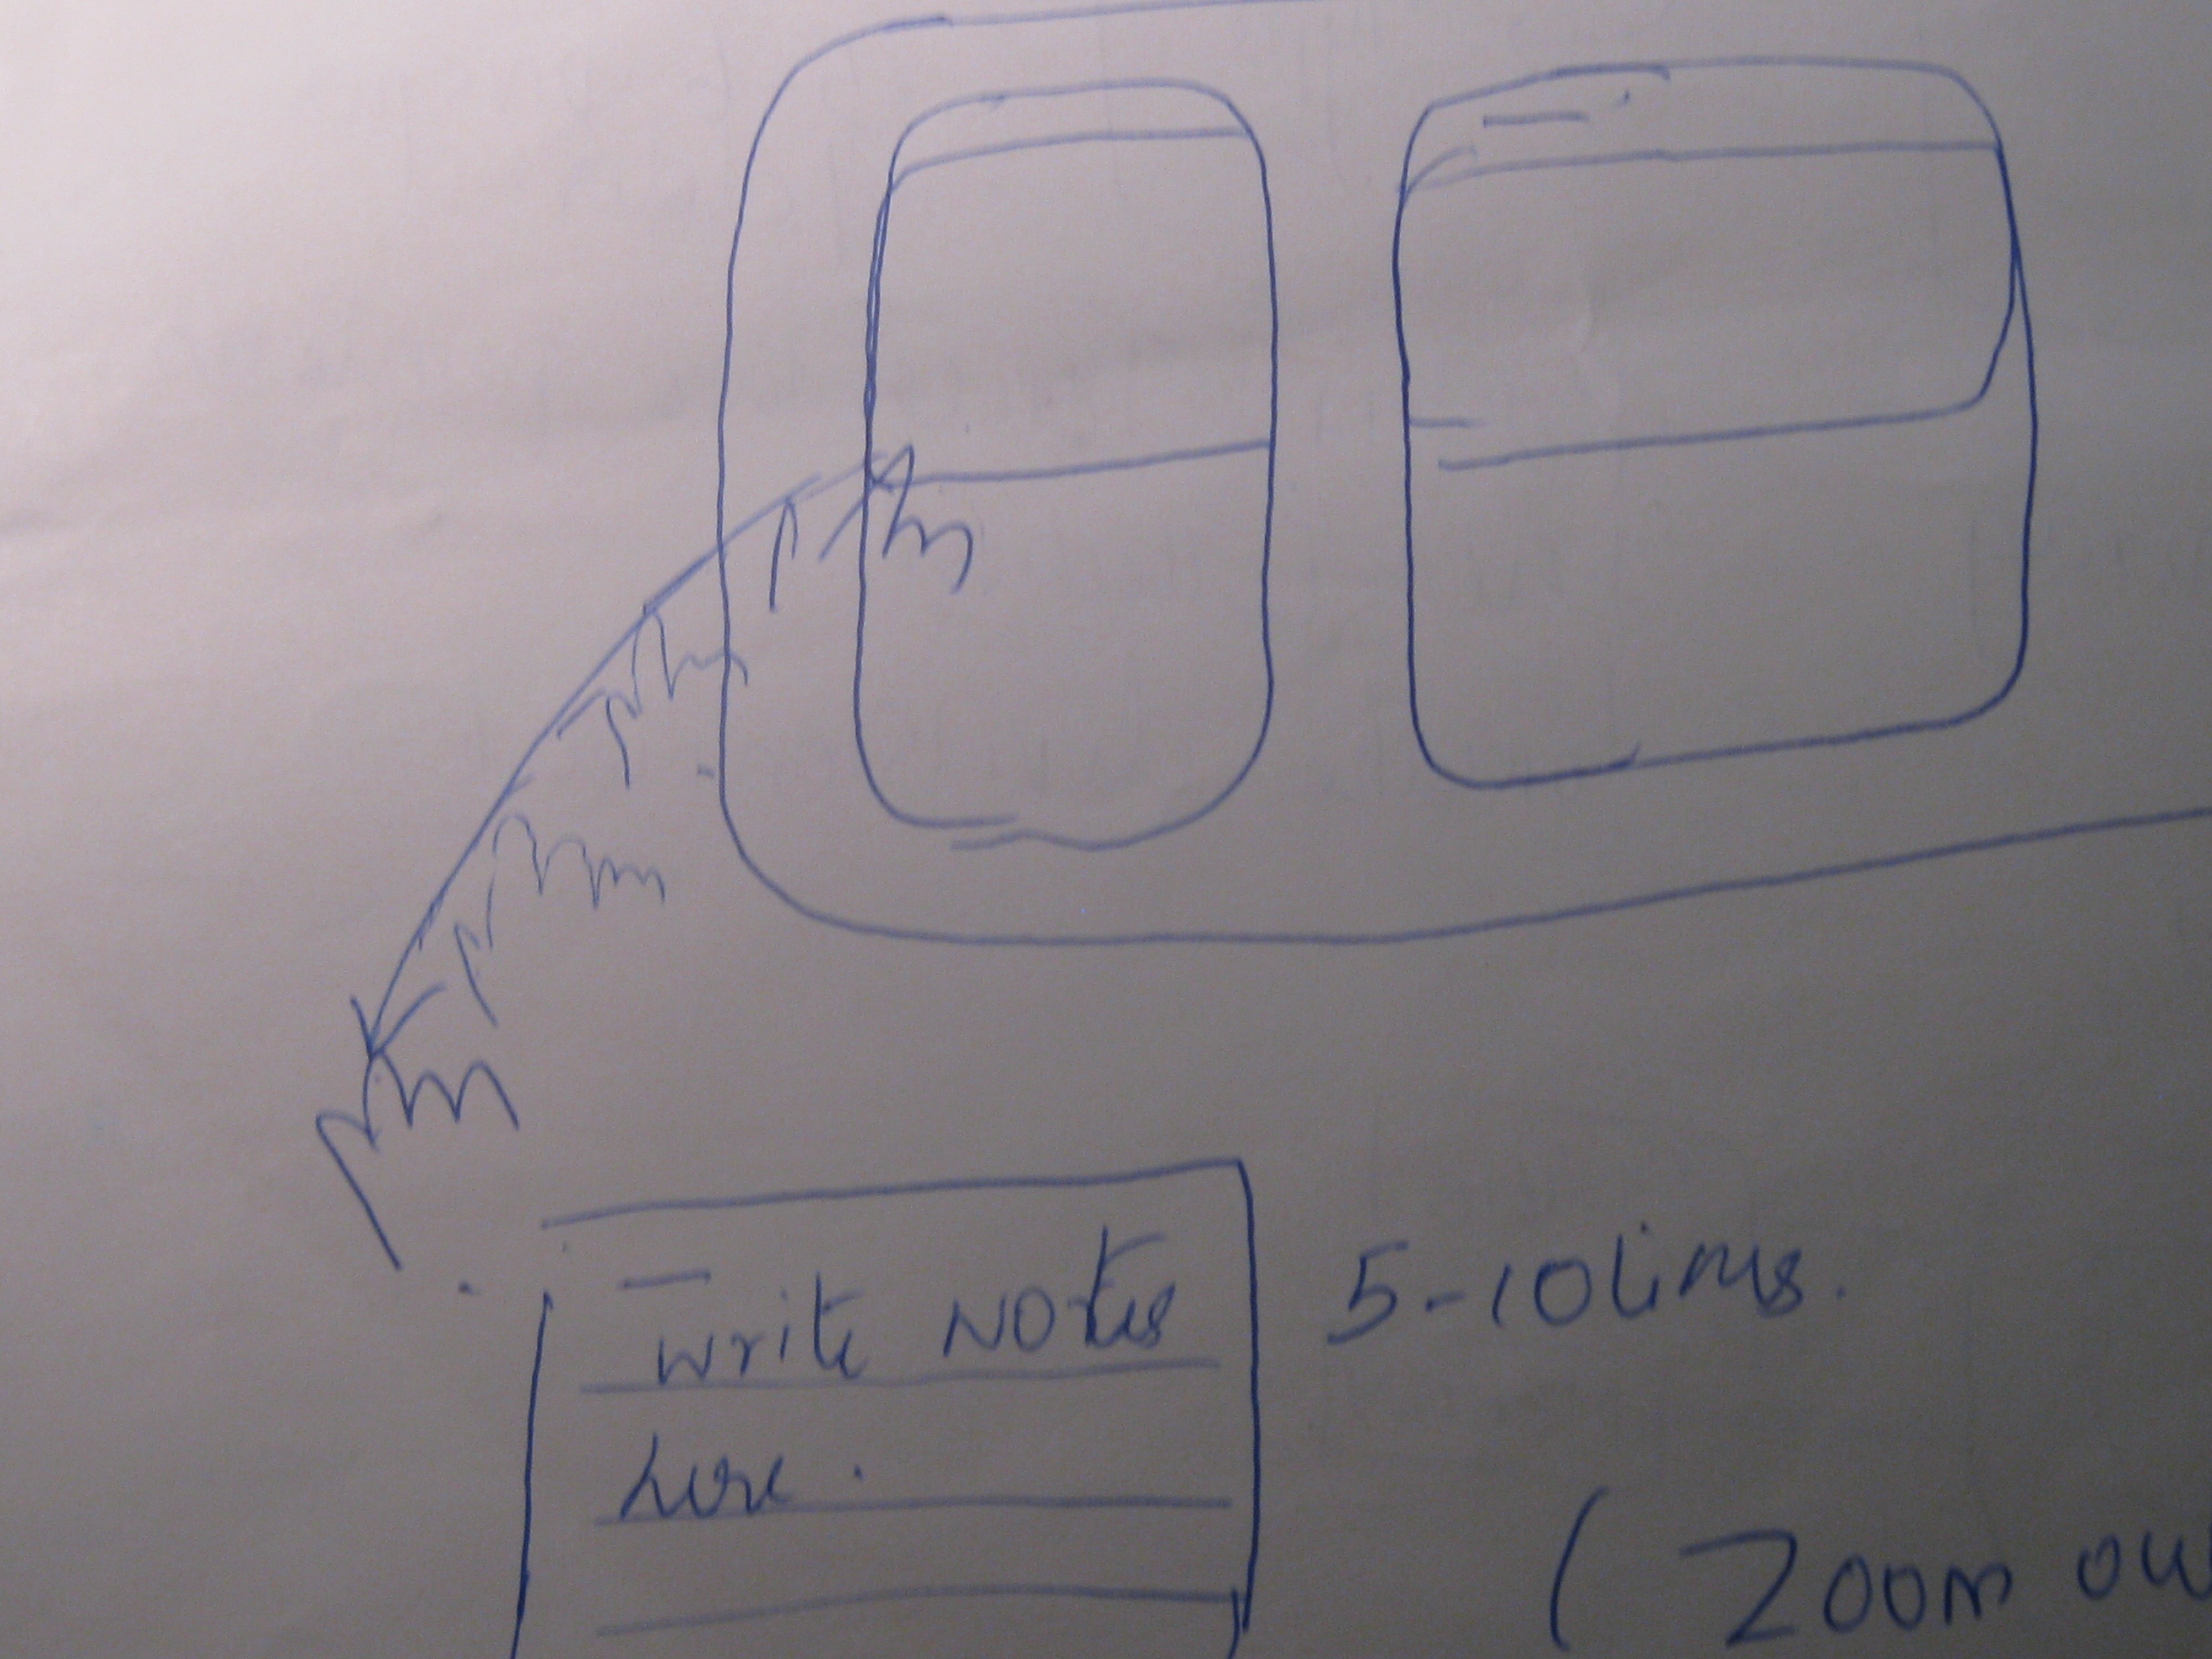 write Notes
here.
5-10 lines.
( Zoom ou